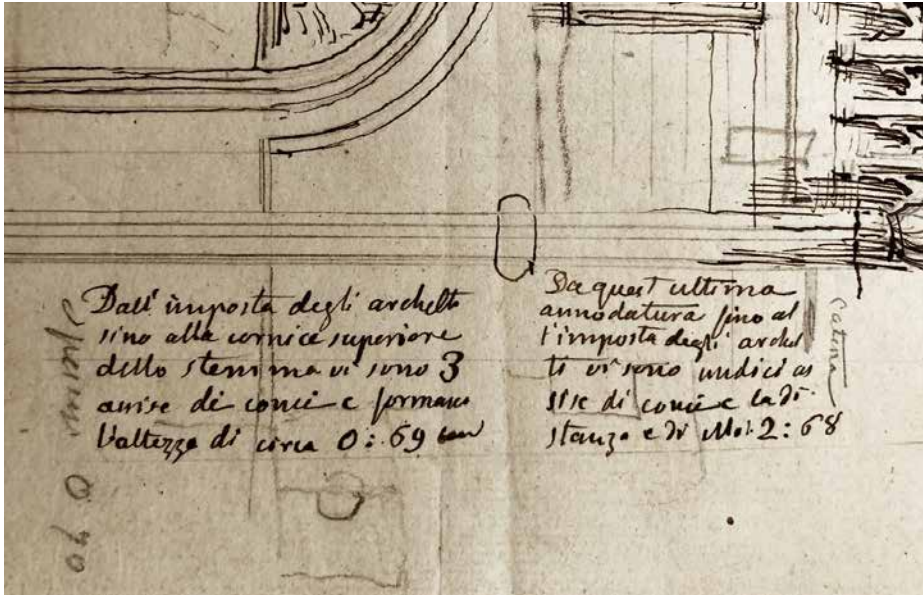 Dall' imposta degli archetti
sino alla cornice superiore
dello stemma vi sono 3
assise di conci e formano
l'altezza di circa 0:69
Da quest ultima
annodatura fino al
l'imposta degli archet
ti vi sono undici as
sise di conci e la di
stanza e di Mol. 2:68
Catena
0 40